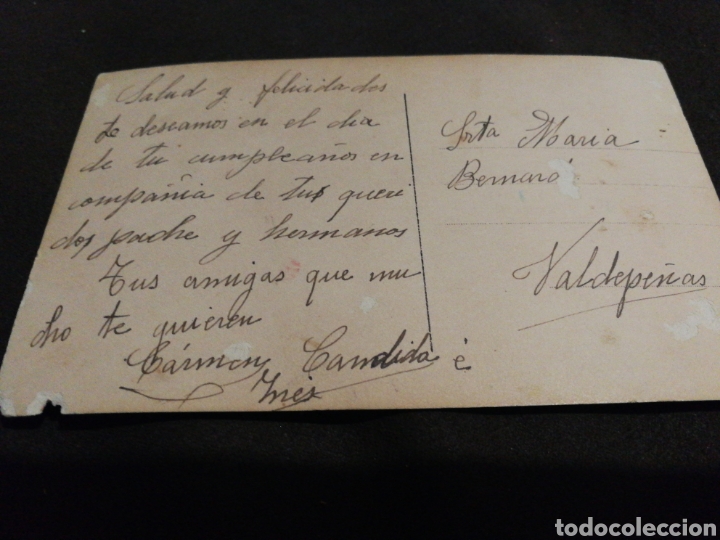 Salud y felicidades
te deseamos en el dia
de tu cumpleaños en
compañia de tus queri
dos padre y hermanos
Tus amigas que mu
cho te quieren
Cármen Candida é
Inés
Srta Maria
Bernaró
Valdepeñas
todocoleccion